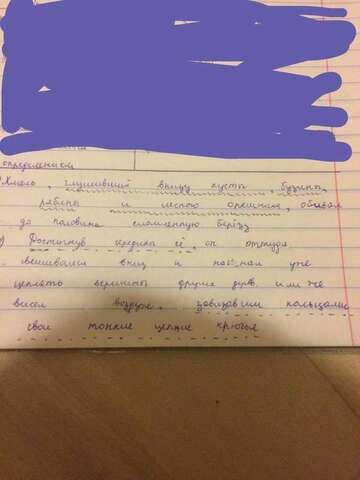 определением
Хмель, глушивший внизу кусты бузины,
рябины и лесного орешника, обивал
до половины сломленную берёзу
Достигнув середины её, он оттуда
свешивался вниз и начинал уже
цеплять вершины других дерев. или же
висел воздухе, завязавши кольцами
свои тонкие цепкие крючья